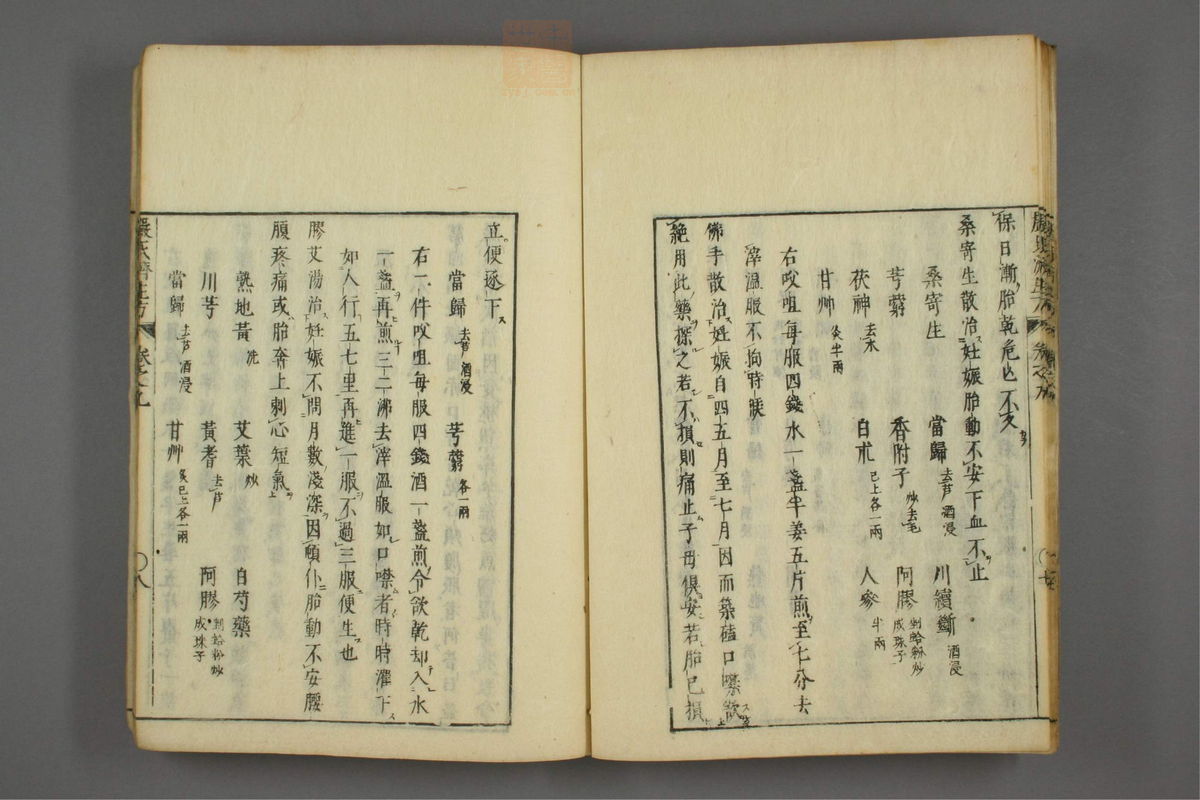 保日漸胎乾危亡不久
桑寄生散治妊娠胎動不安下血不止
桑寄生 當歸去芦酒浸 川續斷酒浸
芎藭 香附子炒去毛 阿膠剉蛤粉炒成珠子
茯神去木 白朮已上各一兩 人參半兩
甘艸炙半兩
右㕮咀每服四錢水一盞半姜五片煎至七分去
滓溫服不拘時候
佛手散治妊娠自四五月至七月因而築磕口噤欲
絶用此藥探之若不損則痛止子母俱安若胎已損
立便逐下
當歸去芦酒浸 芎藭各一兩
右二件㕮咀每服四錢酒一盞煎令欲乾却入水
一盞再煎三二沸去滓溫服如口噤者時時灌下
如人行五七里再進一服不過三服便生也
膠艾湯治妊娠不問月數淺深因頓仆胎動不安腰
腹疼痛或胎奔上刺心短氣
熟地黃洗 艾葉炒 白芍藥
川芎 黃耆去芦 阿膠剉蛤粉炒成珠子
當歸去芦酒浸 甘艸炙已上各一兩
嚴氏濟生方 卷之九 八